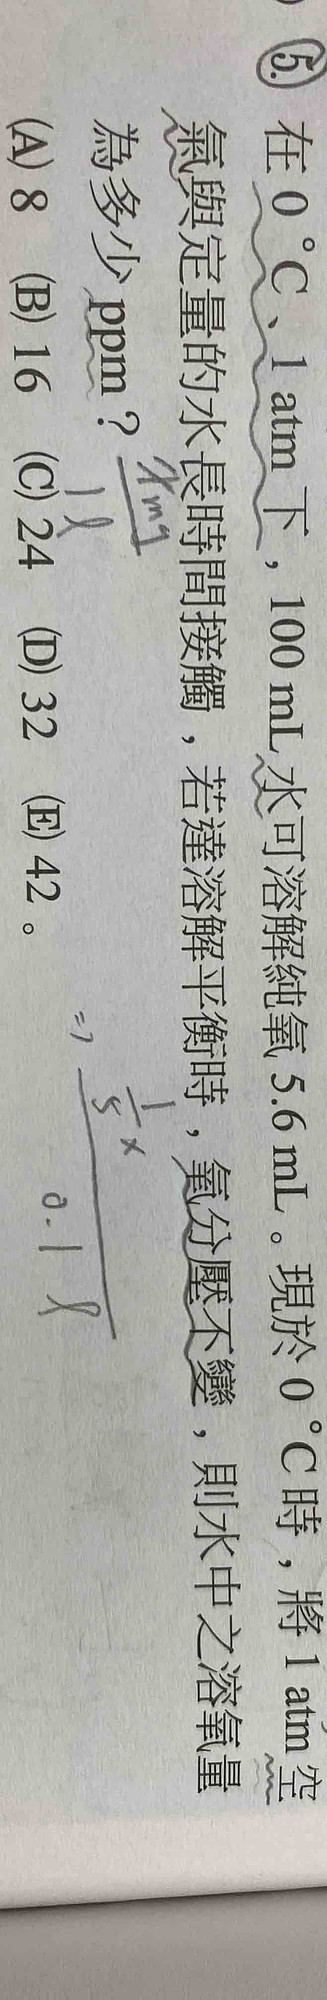 5. 在 0 °C、1 atm 下，100 mL 水可溶解純氧 5.6 mL。現於 0 °C 時，將 1 atm 空
氣與定量的水長時間接觸，若達溶解平衡時，氧分壓不變，則水中之溶氧量
為多少 ppm？
(A) 8 (B) 16 (C) 24 (D) 32 (E) 42。
x mg
1 l
=> 1/5 x
0.1 l